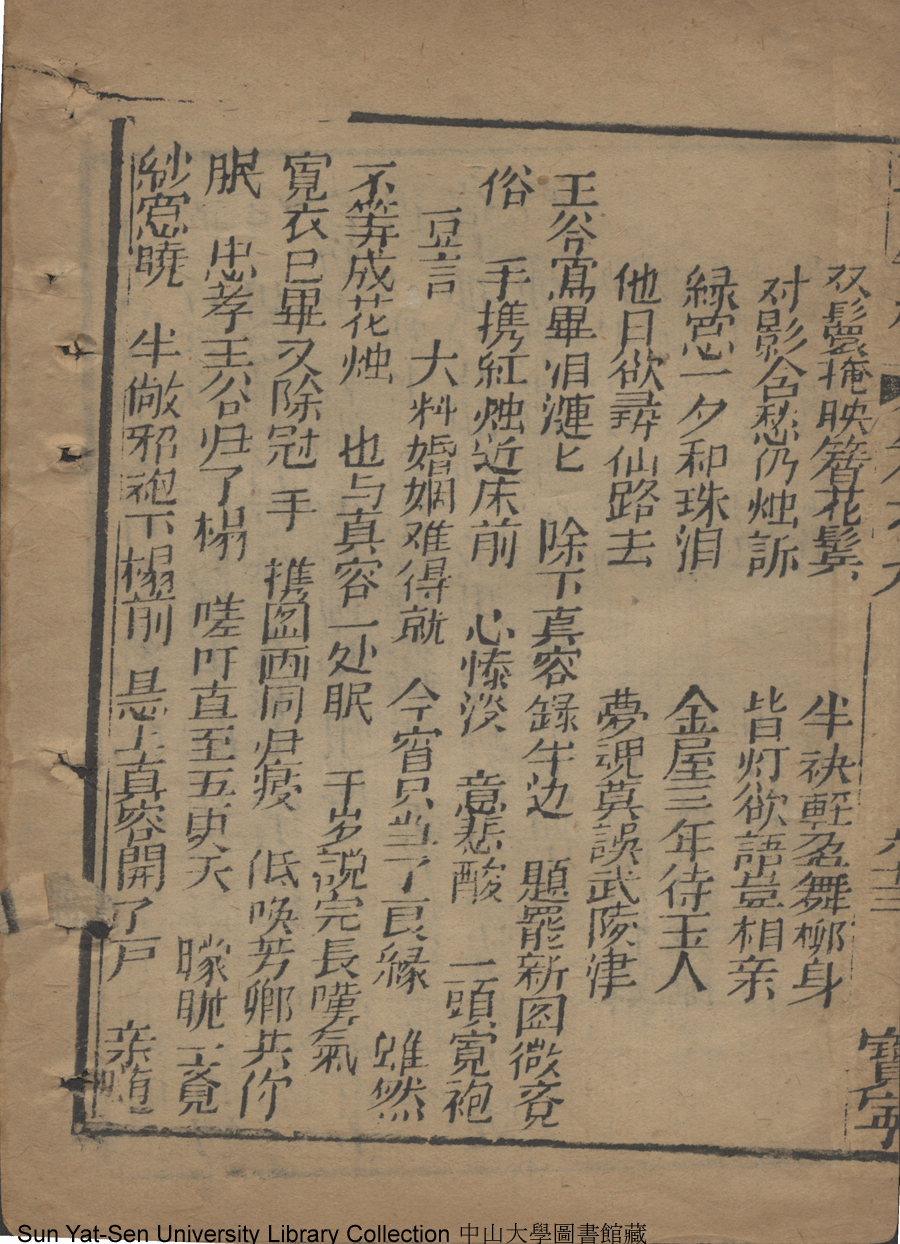 双鬟掩映簪花鬓 半袂輕盈舞柳身
对影含愁仍烛訴 背灯欲語豈相亲
緑窓一夕和珠泪 金屋三年待玉人
他日欲尋仙路去 夢魂莫誤武陵津
王爷寫畢泪漣匕 除下真容錄牛边 題罷新图微
俗 手携紅烛近床前 心惨淡 意悲酸 一頭寛袍
豆言 大料婚姻难得就 今宵只当了良緣 虽然
不筭成花烛 也与真容一处眠 千岁說完長嘆氣
寛衣已畢又除冠 手 携图画同归寝 低唤芳卿共你
眠 忠孝王爷归了榻 嗟吁直至五更天 矇眬一
紗窓曉 半敞邪袍下榻前 悬上真容開了戸 亲随
六十三
寶
Sun Yat-Sen University Library Collection 中山大學圖書館藏